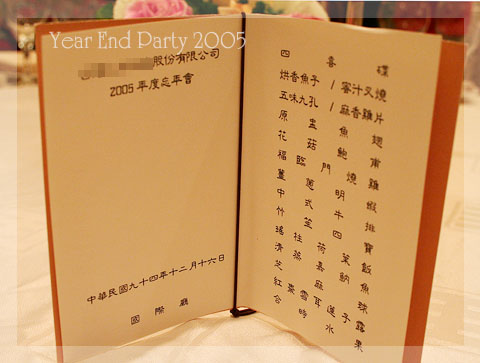 Year End Party 2005
股份有限公司
2005 年度忘年會
中華民國九十四年十二月十六日
國際廳
四喜碟
烘香魚子 / 蜜汁叉燒
五味九孔 / 麻香雞片
原盅魚翅
花菇鮑甫
福臨門燒雞
薑蔥明蝦
中式牛排
竹笙四寶
瑤柱荷葉飯
清蒸嘉納魚
芝麻球
紅棗雪耳蓮子露
合時水果